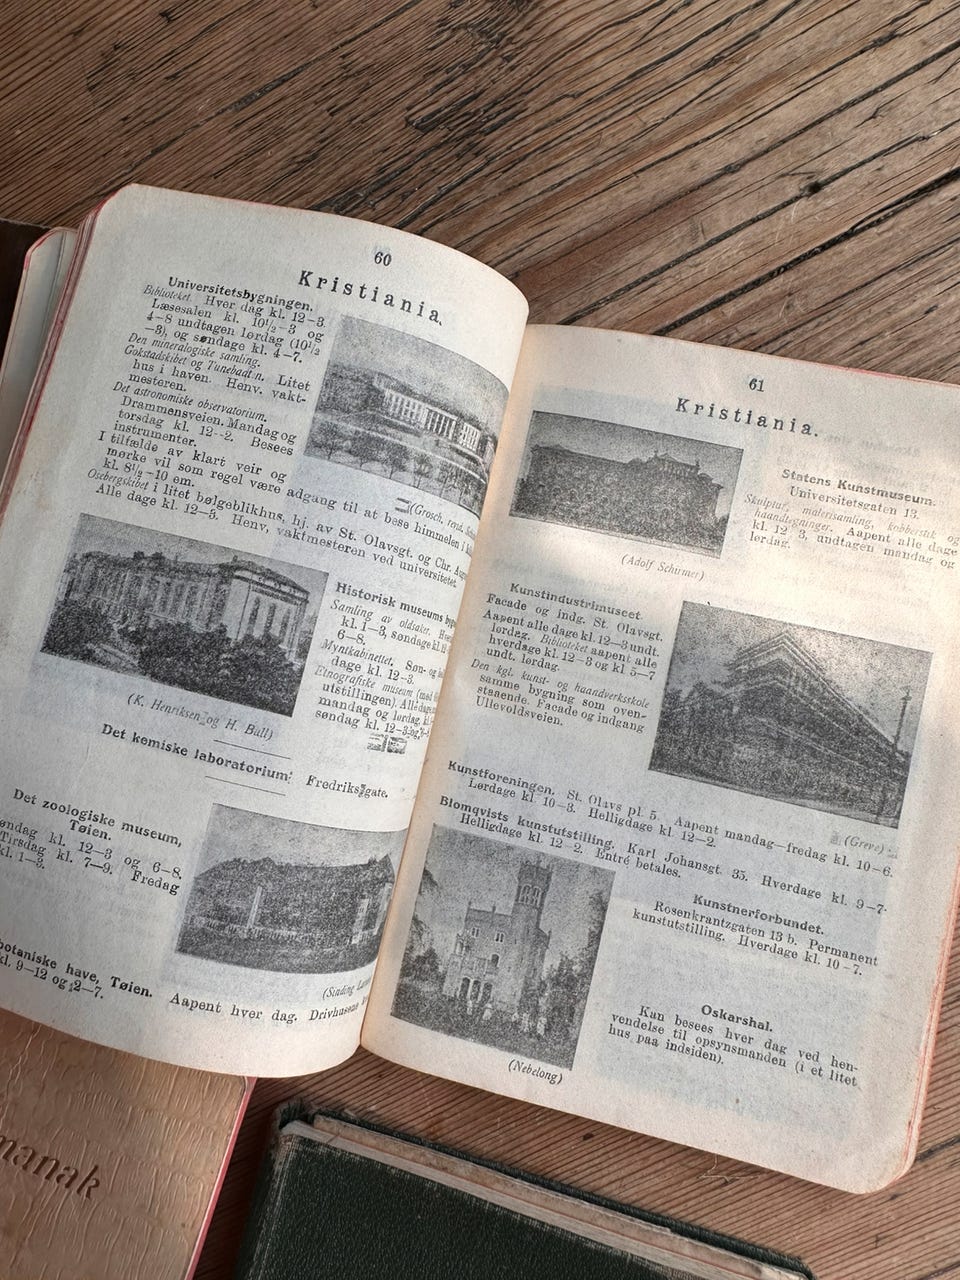 60
Kristiania.
Universitetsbygningen.
Biblioteket. Hver dag kl. 12-3.
Læsesalen kl. 10½-3 og
4-8 undtagen lørdag (10½
-3), og søndage kl. 4-7.
Den mineralogiske samling.
Gokstadskibet og Tunebaaden. Litet
hus i haven. Henv. vakt-
mesteren.
Det astronomiske observatorium.
Drammensveien. Mandag og
torsdag kl. 12--2. Besees
instrumenter.
I tilfælde av klart veir og
mørke vil som regel være adgang til at bese himmelen i
kl. 8½-10 em.
Osebergskibet i litet bølgeblikhus, hj. av St. Olavsgt. og Chr.
Alle dage kl. 12-3. Henv, vaktmesteren ved universitetet.
(Grosch,
Historisk museums
Samling av oldsaker.
kl. 1-3, søndage kl.
6-8.
Myntkabinettet. Søn- og
dage kl. 12-3.
Etnografiske museum
utstillingen). Alle
mandag og lørdag, kl.
søndag kl. 12-3 og
(K. Henriksen og H. Bull)
Det kemiske laboratorium: Fredriksgate.
Det zoologiske museum,
Tøien.
kl. 12-3 og 6-8.
Tirsdag kl. 7-9. Fredag
kl. 1-3.
(Sinding
have, Tøien. Aapent hver dag. Drivhusene
kl. 9-12 og 2-7.
61
Kristiania.
Statens Kunstmuseum.
Universitetsgaten 13.
Skulptur, malerisamling, kobberstik og
haandtegninger. Aapent alle dage
kl. 12-3, undtagen mandag og
lørdag.
(Adolf Schirmer)
Kunstindustrimuseet.
Facade og indg. St. Olavsgt.
Aapent alle dage kl. 12-3 undt.
lørdag. Biblioteket aapent alle
hverdage kl. 12-3 og kl 5-7
undt. lørdag.
Den kgl. kunst- og haandverksskole
samme bygning som oven-
staaende. Facade og indgang
Ullevoldsveien.
(Greve)
Kunstforeningen. St. Olavs pl. 5. Aapent mandag-fredag kl. 10-6.
Lørdage kl. 10-3. Helligdage kl. 12-2.
Blomqvists kunstutstilling. Karl Johansgt. 35. Hverdage kl. 9-7.
Helligdage kl. 12-2. Entré betales.
Kunstnerforbundet.
Rosenkrantzgaten 13 b. Permanent
kunstutstilling. Hverdage kl. 10-7.
Oskarshal.
Kan besees hver dag ved hen-
vendelse til opsynsmanden (i et litet
hus paa indsiden).
(Nebelong)
manak